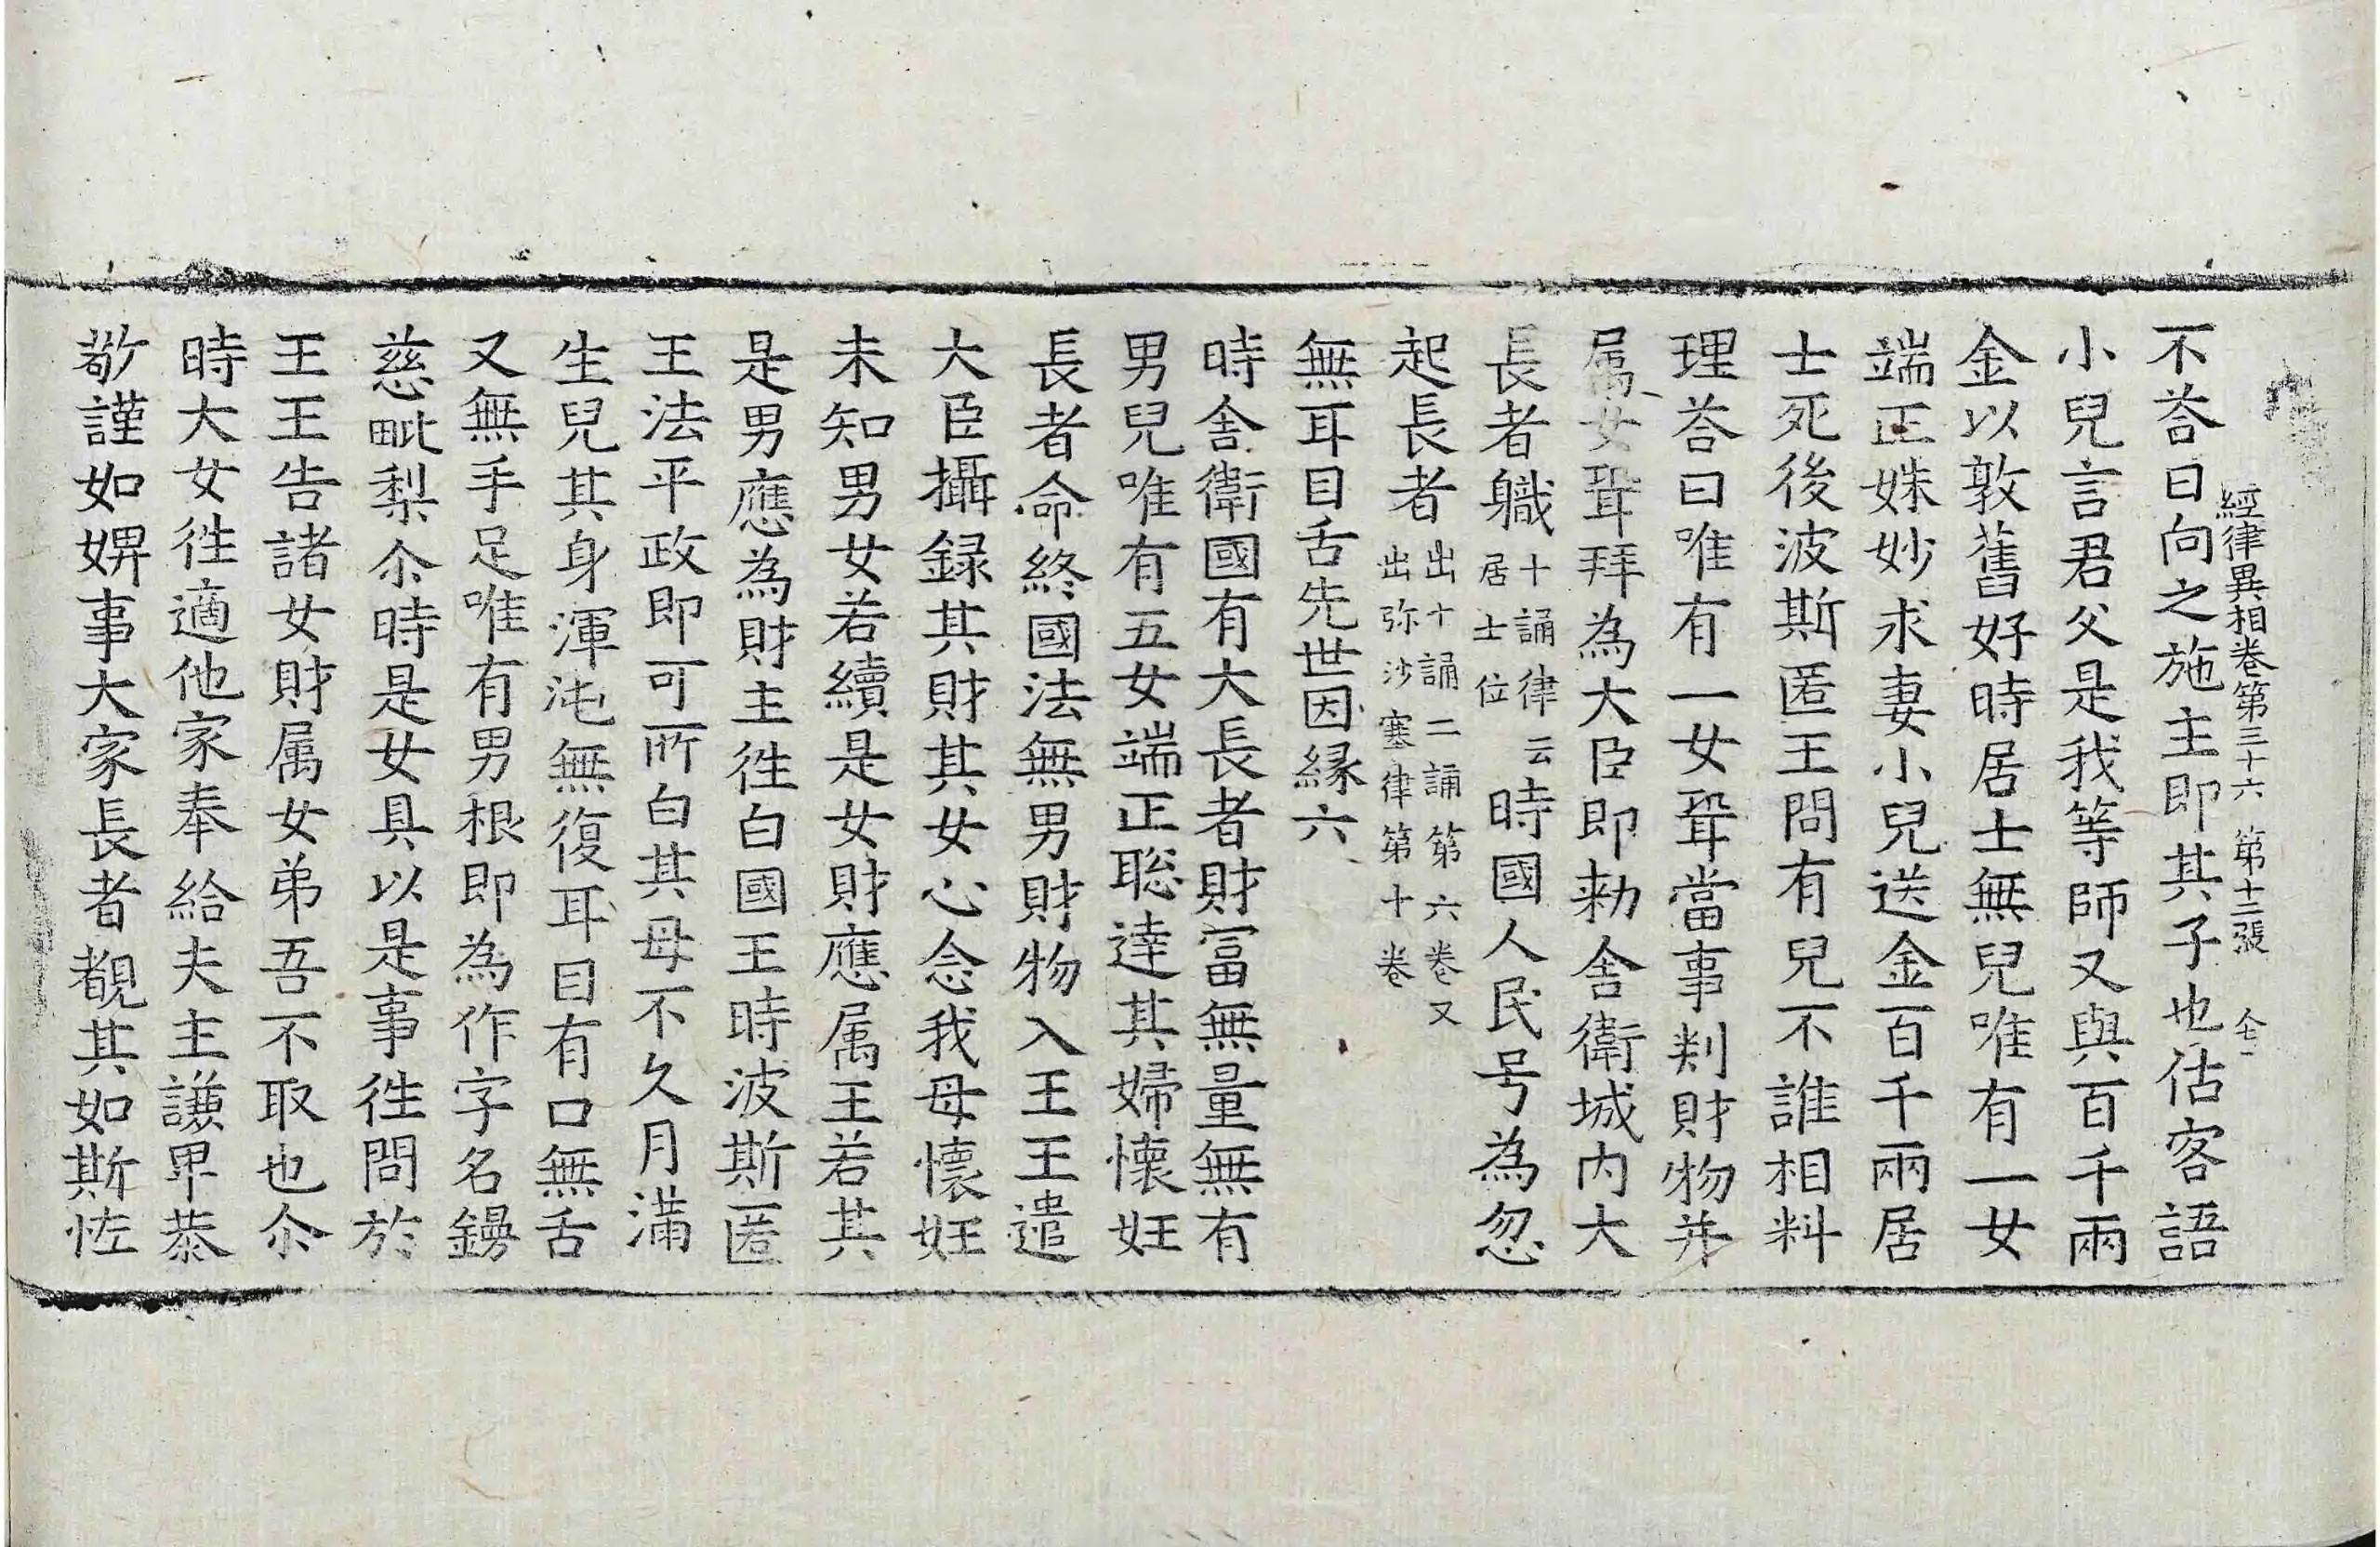 經律異相卷第三十六 第十二張
不荅曰向之施主即其子也估客語
小兒言君父是我等師又與百千兩
金以敦舊好時居士無兒唯有一女
端正姝妙求妻小兒送金百千兩居
士死後波斯匿王問有兒不誰相料
理荅曰唯有一女聟當事判財物并
属女聟拜為大臣即勑舎衛城内大
長者軄十誦律云居士位時國人民号為忽
起長者出十誦二誦第六卷又出弥沙塞律第十卷
無耳目舌先世因縁六
時舎衛國有大長者財冨無量無有
男兒唯有五女端正聡達其婦懐妊
長者命終國法無男財物入王王遣
大臣攝録其財其女心念我母懐妊
未知男女若續是女財應属王若其
是男應為財主徃白國王時波斯匿
王法平政即可所白其母不久月滿
生兒其身渾沌無復耳目有口無舌
又無手足唯有男根即為作字名鏝
慈毗梨尒時是女具以是事徃問於
王王告諸女財属女弟吾不取也尒
時大女徃適他家奉給夫主謙卑恭
敬謹如婢事大家長者覩其如斯恠